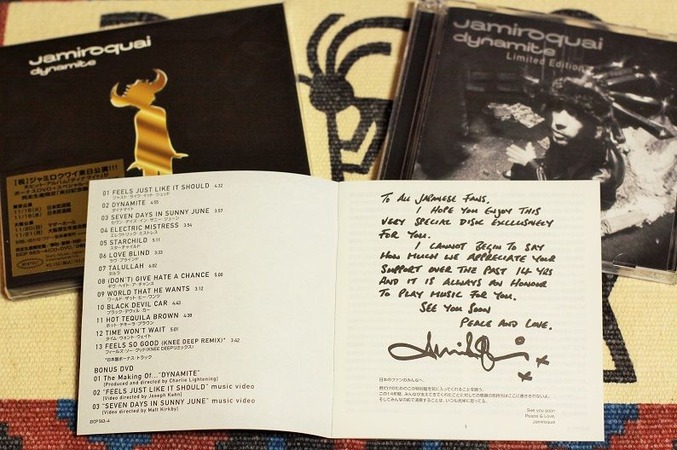 Jamiroquai
dynamite
[祝]ジャミロクワイ来日公演!!!
Jamiroquai
dynamite
Limited Edition
01 FEELS JUST LIKE IT SHOULD 4:32
02 DYNAMITE 4:55
ダイナマイト
03 SEVEN DAYS IN SUNNY JUNE 3:57
04 ELECTRIC MISTRESS 3:54
エレクトリック・ミストレス
05 STARCHILD 5:11
スターチャイルド
06 LOVE BLIND 3:33
ラヴ・ブラインド
07 TALULLAH 6:02
タルラ
08 (DON'T) GIVE HATE A CHANCE 5:00
ギヴ・ヘイト・ア・チャンス
09 WORLD THAT HE WANTS 3:12
ワールド・ザット・ヒー・ワンツ
10 BLACK DEVIL CAR 4:43
ブラック・デヴィル・カー
11 HOT TEQUILA BROWN 4:39
ホット・テキーラ・ブラウン
12 TIME WON'T WAIT 5:01
タイム・ウォント・ウェイト
13 FEELS SO GOOD (KNEE DEEP REMIX)* 3:42
*日本盤ボーナス・トラック
BONUS DVD
01 The Making Of..."DYNAMITE"
(Produced and directed by Charlie Lightening)
02 "FEELS JUST LIKE IT SHOULD" music video
(Video directed by Joseph Kahn)
03 "SEVEN DAYS IN SUNNY JUNE" music video
(Video directed by Matt Kirkby)
TO ALL JAPANESE FANS.
I HOPE YOU ENJOY THIS
VERY SPECIAL DISK EXCLUSIVELY
FOR YOU.
I CANNOT BEGIN TO SAY
HOW MUCH WE APPRECIATE YOUR
SUPPORT OVER THE PAST 14 YRS
AND IT IS ALWAYS AN HONOUR
TO PLAY MUSIC FOR YOU.
SEE YOU SOON
PEACE AND LOVE.
日本のファンのみんなへ、
See you soon
Peace & Love,
Jamiroquai